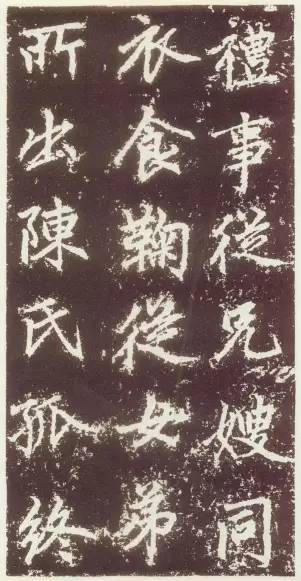 禮事從兄嫂同
衣食鞠從女弟
所出陳氏孤終